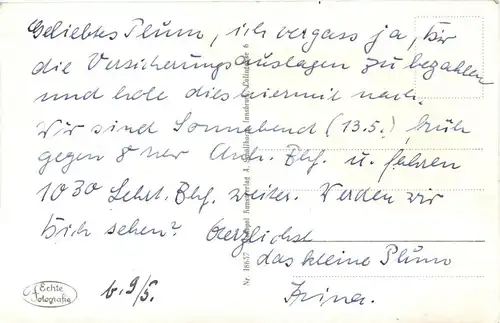 Geliebtes Plum, ich vergass ja, Dir
die Versicherungsauslagen zu bezahlen
und hole dies hiermit nach.
Wir sind Sonnabend (13.5.) früh
gegen 8 Uhr Anh. Bhf. u. fahren
1030 Lehrt. Bhf. weiter. Werden wir
Dich sehen? Herzlichst
das kleine Plum
Irina.
b. 9/5.
Echte
Fotografie
Nr. 18657 Kunstverlag A. Innsbruck, 6